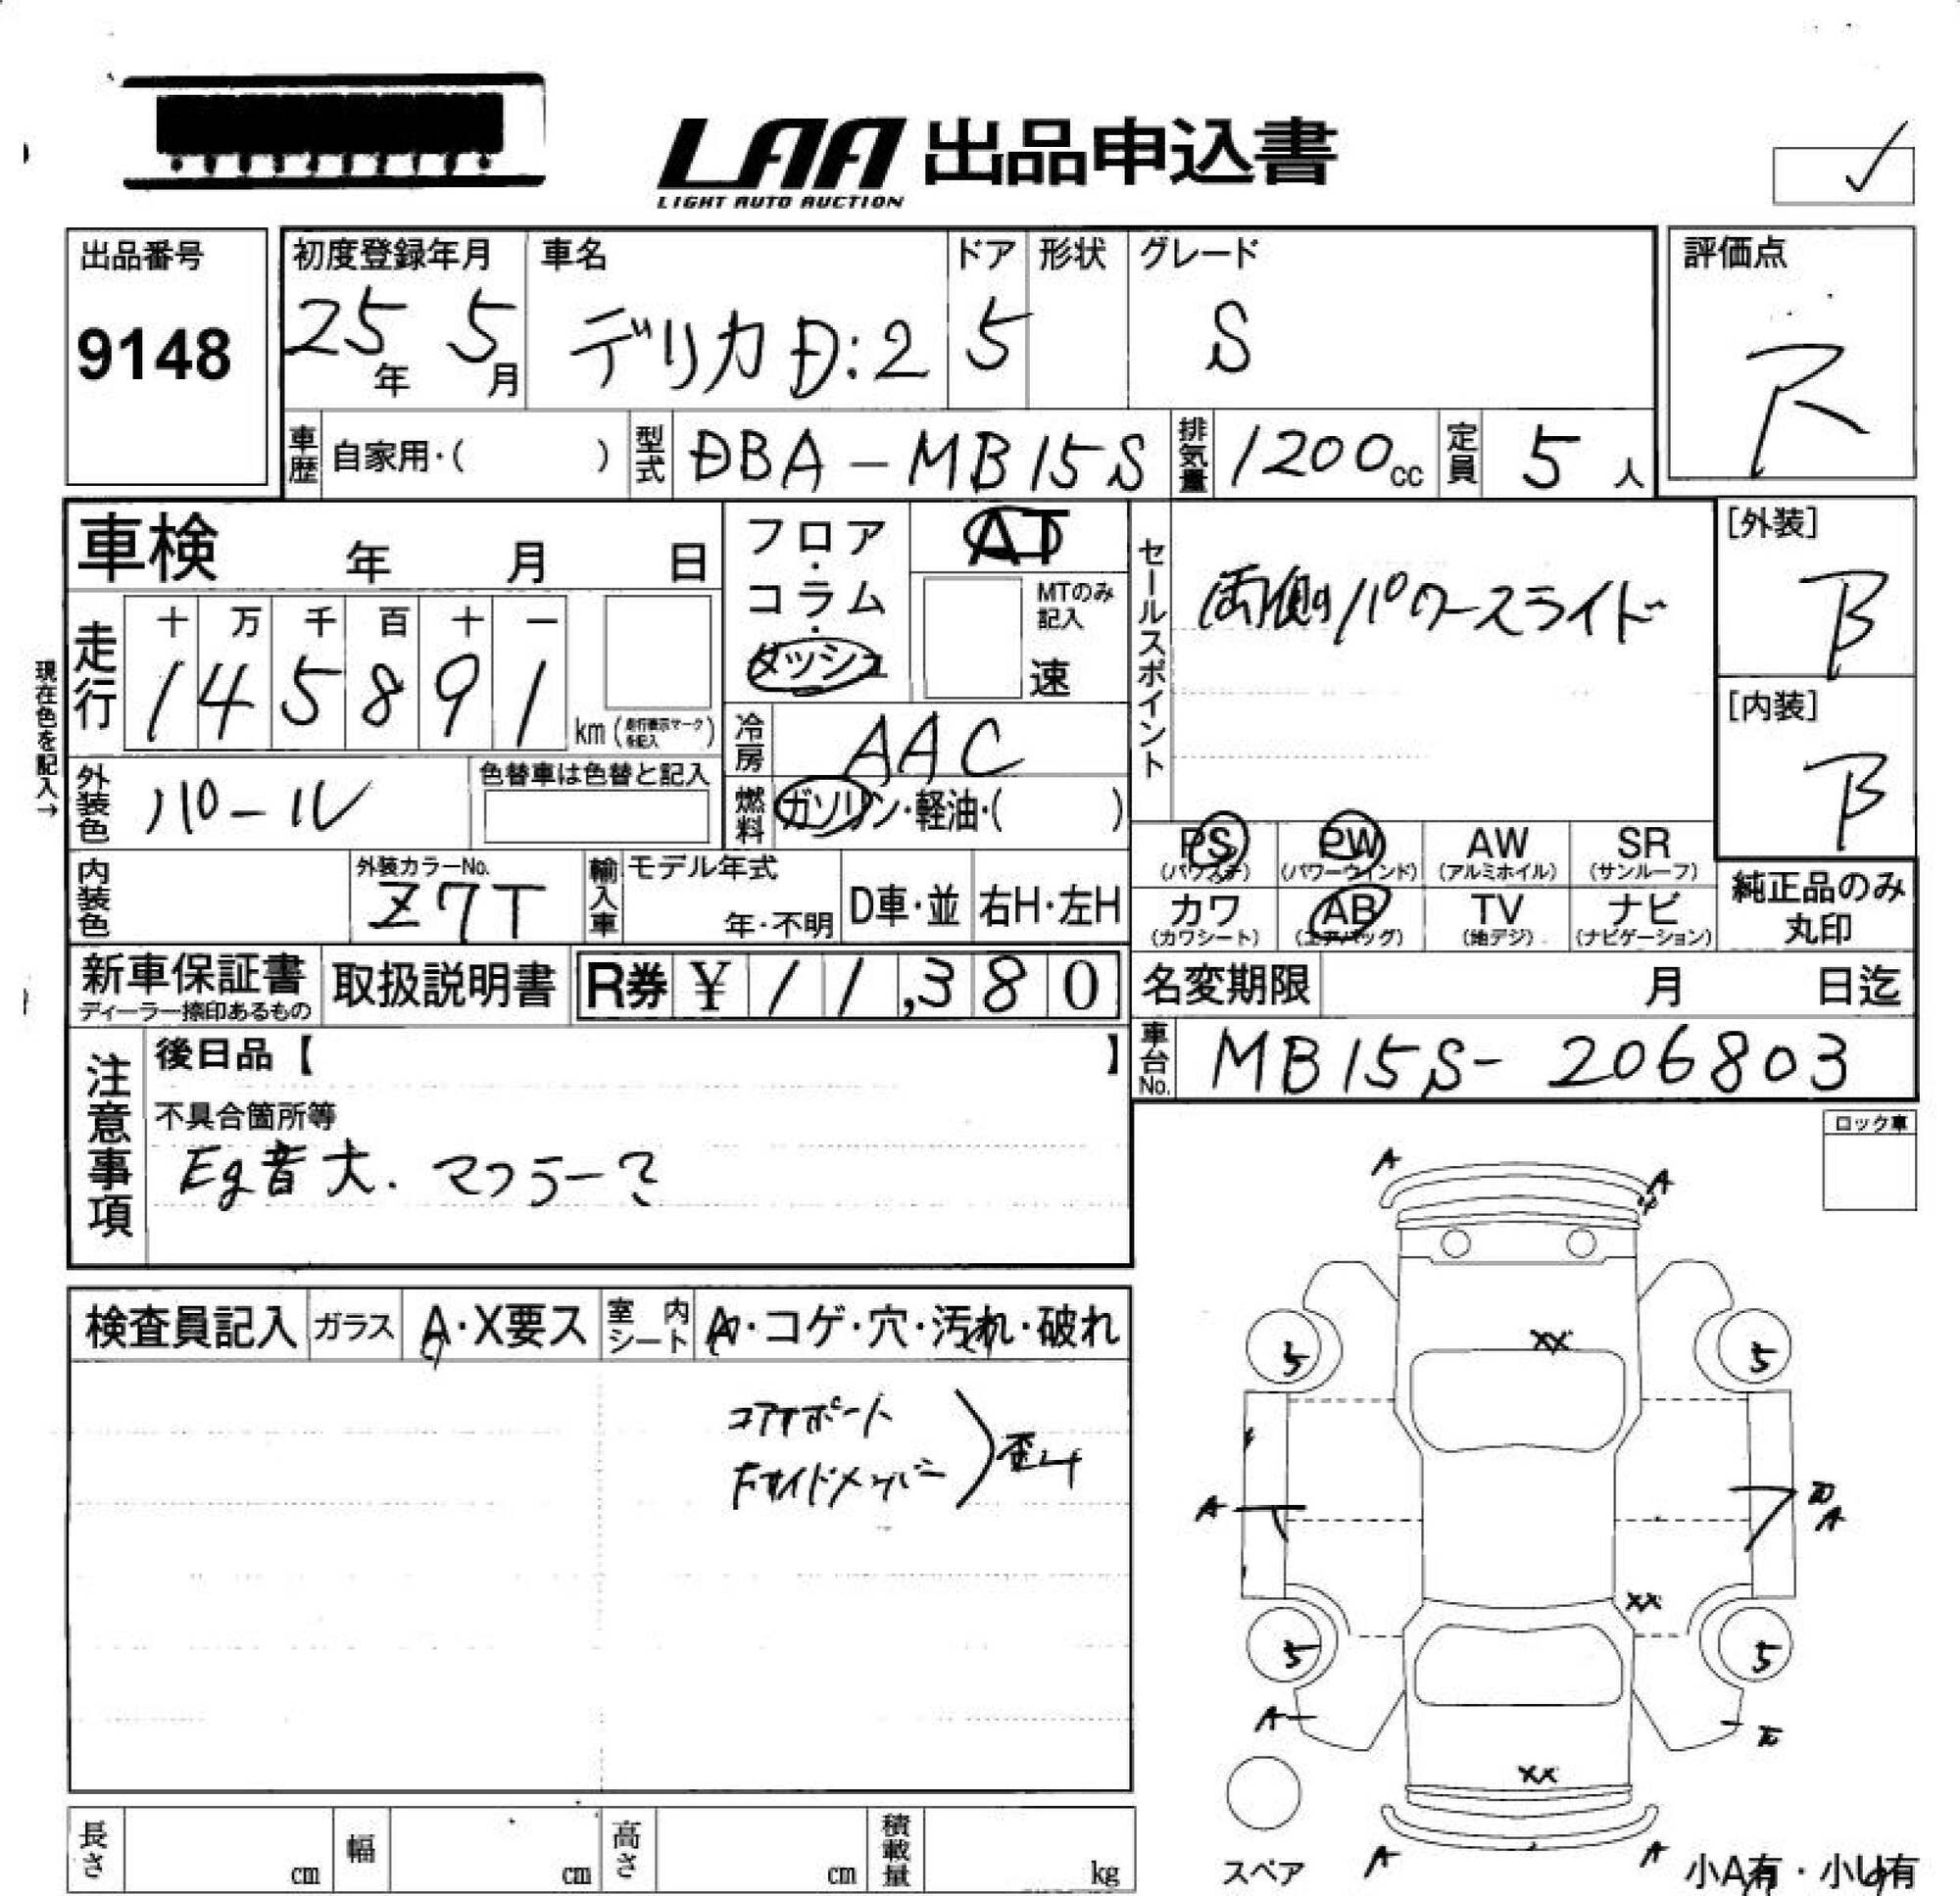 LAA 出品申込書
LIGHT AUTO AUCTION
出品番号
9148
初度登録年月
25年 5月
車名
デリカD:2
ドア
5
形状
グレード
S
評価点
R
車歴 自家用・( )
型式 DBA-MB15S
排気量 1200cc
定員 5人
車検 年 月 日
フロア・コラム・ダッシュ
AT
MTのみ記入
速
セールスポイント
両側パワースライド
[外装]
B
[内装]
B
現在色を記入→
走行
十 万 千 百 十 一
1 4 5 8 9 1
km (走行表示マークを記入)
冷房 AAC
外装色 パール
色替車は色替と記入
燃料 ガソリン・軽油・( )
PS (パワステ) PW (パワーウインド) AW (アルミホイル) SR (サンルーフ)
カワ (カワシート) AB (エアバッグ) TV (地デジ) ナビ (ナビゲーション)
純正品のみ丸印
内装色
外装カラーNo.
Z7T
輸入車
モデル年式
年・不明
D車・並
右H・左H
新車保証書
ディーラー捺印あるもの
取扱説明書
R券 ¥ 11,380
名変期限 月 日迄
車台No. MB15S-206803
注意事項
後日品【 】
不具合箇所等
Eg音大. マフラー?
ロック車
検査員記入 ガラス A・X要ス 室内シート A・コゲ・穴・汚れ・破れ
コアサポート
右サイドメンバー
歪み
A A
XX
5 5
A A
XX
5 5
A
XX
A A
スペア
小A有・小U有
長さ cm 幅 cm 高さ cm 積載量 kg